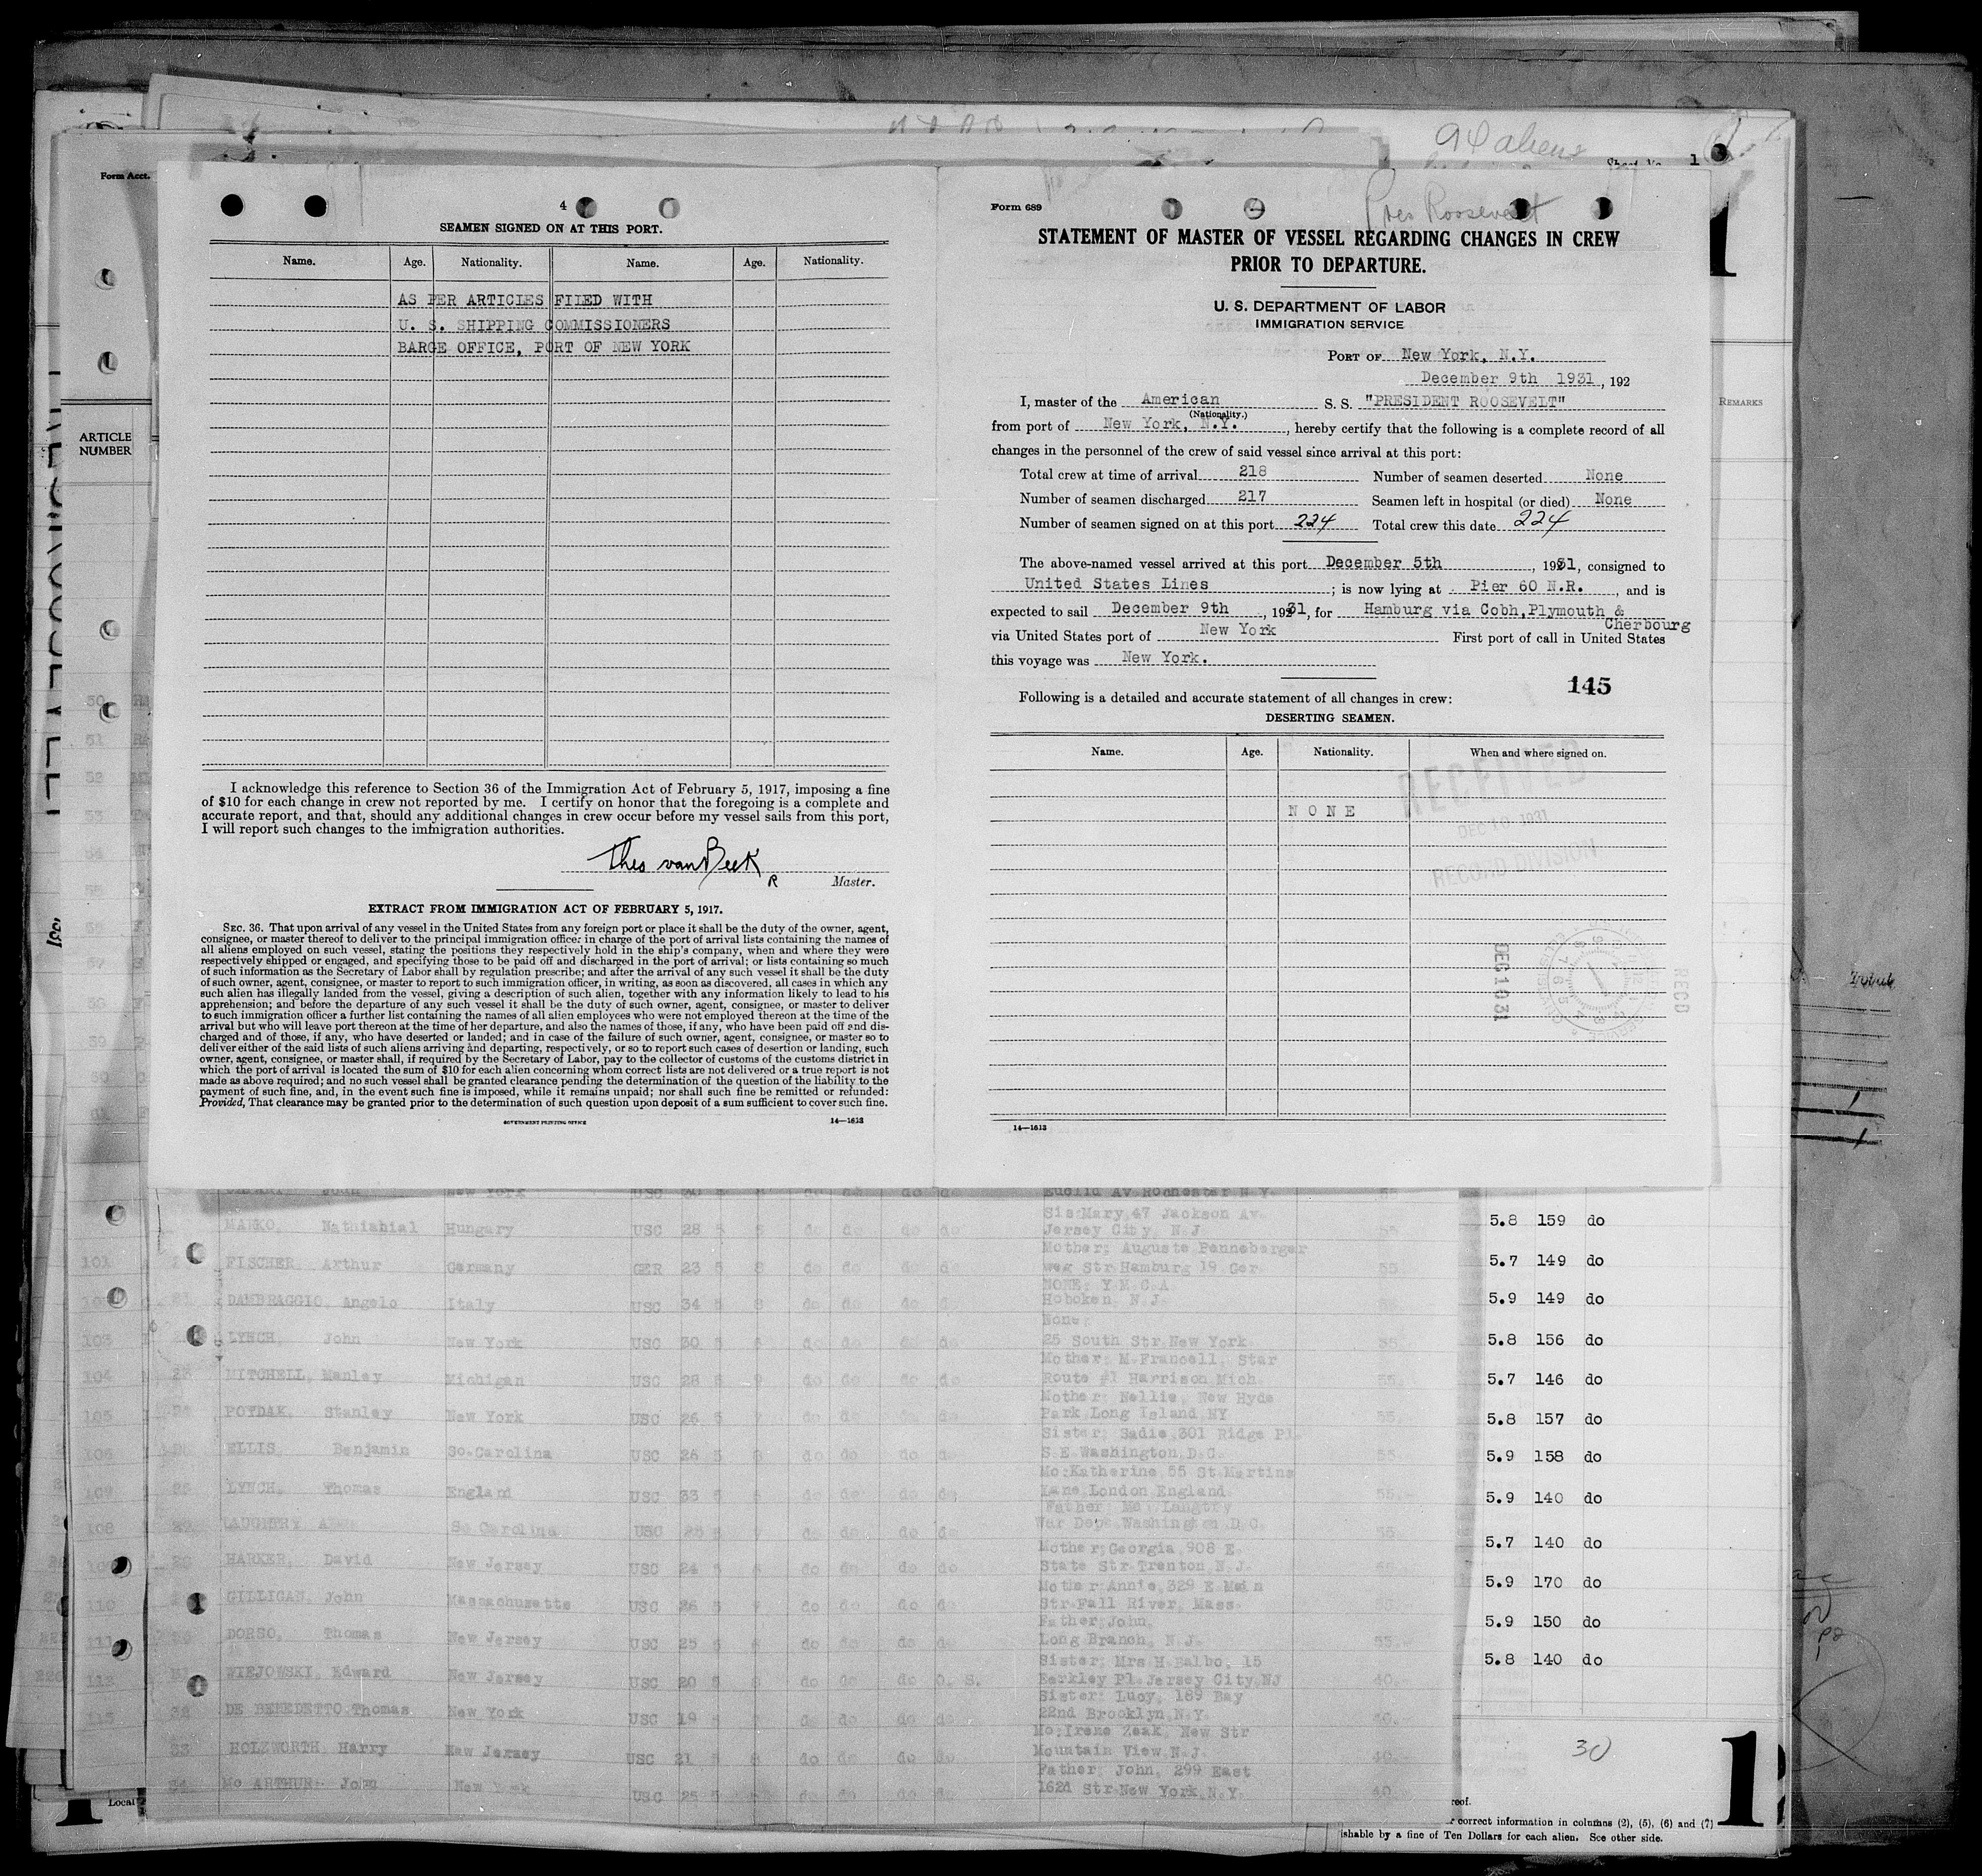 94 aliens
Form Acct.
ARTICLE
NUMBER
4
SEAMEN SIGNED ON AT THIS PORT.
Name. Age. Nationality. Name. Age. Nationality.
AS PER ARTICLES FILED WITH
U. S. SHIPPING COMMISSIONERS
BARGE OFFICE, PORT OF NEW YORK
I acknowledge this reference to Section 36 of the Immigration Act of February 5, 1917, imposing a fine
of $10 for each change in crew not reported by me. I certify on honor that the foregoing is a complete and
accurate report, and that, should any additional changes in crew occur before my vessel sails from this port,
I will report such changes to the immigration authorities.
Theo van Beek
R Master.
EXTRACT FROM IMMIGRATION ACT OF FEBRUARY 5, 1917.
SEC. 36. That upon arrival of any vessel in the United States from any foreign port or place it shall be the duty of the owner, agent,
consignee, or master thereof to deliver to the principal immigration officer in charge of the port of arrival lists containing the names of
all aliens employed on such vessel, stating the positions they respectively hold in the ship's company, when and where they were
respectively shipped or engaged, and specifying those to be paid off and discharged in the port of arrival; or lists containing so much
of such information as the Secretary of Labor shall by regulation prescribe; and after the arrival of any such vessel it shall be the duty
of such owner, agent, consignee, or master to report to such immigration officer, in writing, as soon as discovered, all cases in which any
such alien has illegally landed from the vessel, giving a description of such alien, together with any information likely to lead to his
apprehension; and before the departure of any such vessel it shall be the duty of such owner, agent, consignee, or master to deliver
to such immigration officer a further list containing the names of all alien employees who were not employed thereon at the time of the
arrival but who will leave port thereon at the time of her departure, and also the names of those, if any, who have been paid off and dis-
charged and of those, if any, who have deserted or landed; and in case of the failure of such owner, agent, consignee, or master so to
deliver either of the said lists of such aliens arriving and departing, respectively, or so to report such cases of desertion or landing, such
owner, agent, consignee, or master shall, if required by the Secretary of Labor, pay to the collector of customs of the customs district in
which the port of arrival is located the sum of $10 for each alien concerning whom correct lists are not delivered or a true report is not
made as above required; and no such vessel shall be granted clearance pending the determination of the question of the liability to the
payment of such fine, and, in the event such fine is imposed, while it remains unpaid; nor shall such fine be remitted or refunded:
Provided, That clearance may be granted prior to the determination of such question upon deposit of a sum sufficient to cover such fine.
GOVERNMENT PRINTING OFFICE 14—1613
Form 689
Pres Roosevelt
STATEMENT OF MASTER OF VESSEL REGARDING CHANGES IN CREW
PRIOR TO DEPARTURE.
U. S. DEPARTMENT OF LABOR
IMMIGRATION SERVICE
PORT OF New York, N.Y.
December 9th 1931, 192
I, master of the American S. S. "PRESIDENT ROOSEVELT"
(Nationality.)
from port of New York, N.Y., hereby certify that the following is a complete record of all
changes in the personnel of the crew of said vessel since arrival at this port:
Total crew at time of arrival 218 Number of seamen deserted None
Number of seamen discharged 217 Seamen left in hospital (or died) None
Number of seamen signed on at this port 224 Total crew this date 224
The above-named vessel arrived at this port December 5th, 1931, consigned to
United States Lines; is now lying at Pier 60 N.R., and is
expected to sail December 9th, 1931, for Hamburg via Cobh, Plymouth &
Cherbourg
via United States port of New York First port of call in United States
this voyage was New York.
145
Following is a detailed and accurate statement of all changes in crew:
DESERTING SEAMEN.
Name. Age. Nationality. When and where signed on.
RECEIVED
NONE
DEC 10 1931
RECORD DIVISION
DEC 10 31
RECD
14—1613
REMARKS
1
MANKO, Nathiahial Hungary USC 28 5 Sis Mary, 47 Jackson Av. Jersey City, N.J. 5.8 159 do
101 FISCHER Arthur Germany GER 23 5 Mother: Auguste Penneberger weg Str Hamburg 19 Ger. 5.7 149 do
DAMBRAGGIO, Angelo Italy USC 34 5 NONE: Y.M.C.A. Hoboken, N.J. 5.9 149 do
103 LYNCH, John New York USC 30 5 None: 25 South Str New York 5.8 156 do
104 MITCHELL, Manley Michigan USC 28 5 Mother: M. Francell, Star Route #1 Harrison Mich. 5.7 146 do
105 POTDAK, Stanley New York USC 26 5 Mother: Nellie, New Hyde Park Long Island NY 5.8 157 do
106 ELLIS, Benjamin So.Carolina USC 26 5 Sister: Sadie, 301 Ridge Pl. S.E. Washington, D.C. 5.9 158 do
107 LYNCH, Thomas England USC 33 5 Mo: Katherine, 55 St Martins Lane London England 5.9 140 do
108 So Carolina USC War Dept Washington D.C. 5.7 140 do
HARKER, David New Jersey USC 24 5 Mother: Georgia, 908 E. State Str Trenton N.J. 5.9 170 do
110 GILLIGAN, John Massachusetts USC 26 5 Mother Annie, 329 E Main Str Fall River, Mass. 5.9 150 do
111 DORSO, Thomas New Jersey USC 25 5 Father: John, Long Branch, N.J. 5.8 140 do
WIEJOWSKI, Edward New Jersey USC 20 5 O. S. Sister: Mrs H Balbo, 15 Berkley Pl. Jersey City, NJ 40.
DE BENEDETTO Thomas New York USC 19 5 Sister: Lucy, 189 Bay 22nd Brooklyn, N.Y. 40.
33 HOLZWORTH Harry New Jersey USC 21 5 Mo: Irene Zeak, New Str Mountain View N.J. 40.
34 Mc ARTHUR John New York USC 25 5 Father: John, 299 East 162d Str New York, N.Y. 40.
30
1
Local
reof.
correct information in columns (2), (5), (6) and (7)
ishable by a fine of Ten Dollars for each alien. See other side.